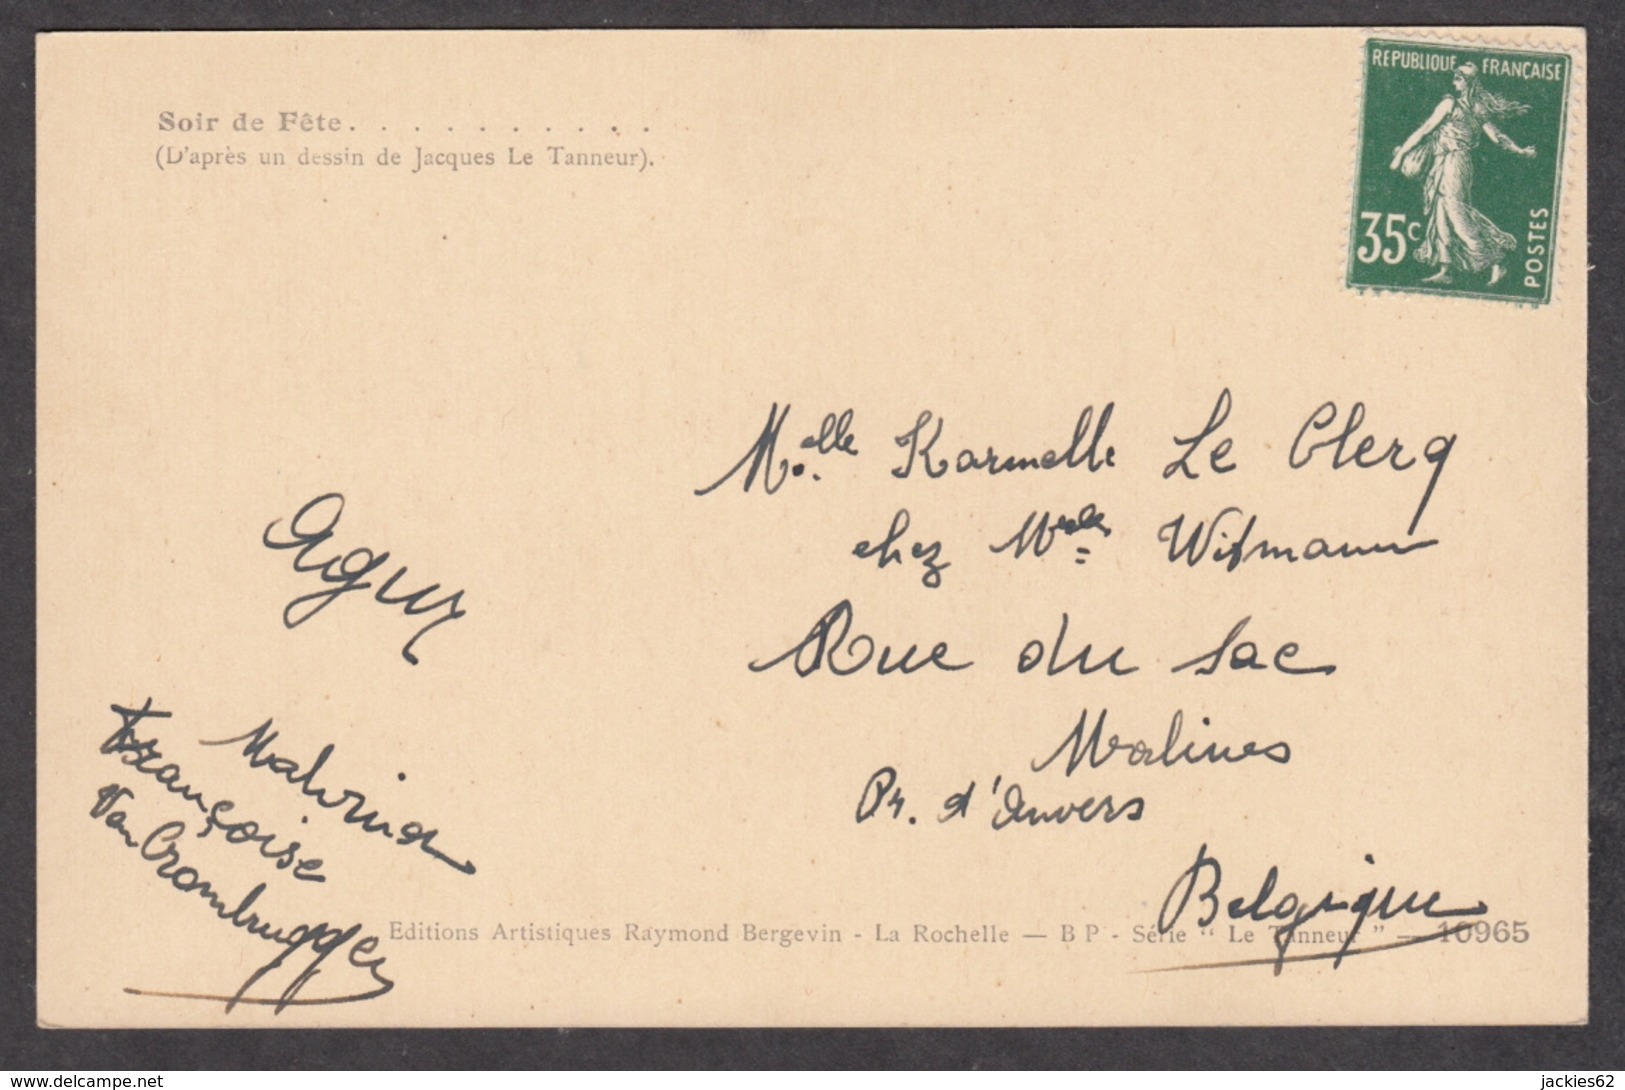 Soir de Fête. . . . . . . . . . .
(D'après un dessin de Jacques Le Tanneur).
REPUBLIQUE FRANÇAISE
35c
POSTES
Melle Karmelle Le Clerq
chez Melle Witmann
Rue du Sac
Malines
Pr. d'Anvers
Belgique
Agur
Malvina
Françoise
Van Crombrugge
Editions Artistiques Raymond Bergevin - La Rochelle — B P - Série " Le Tanneur " — 10965
delcampe.net
jackies62